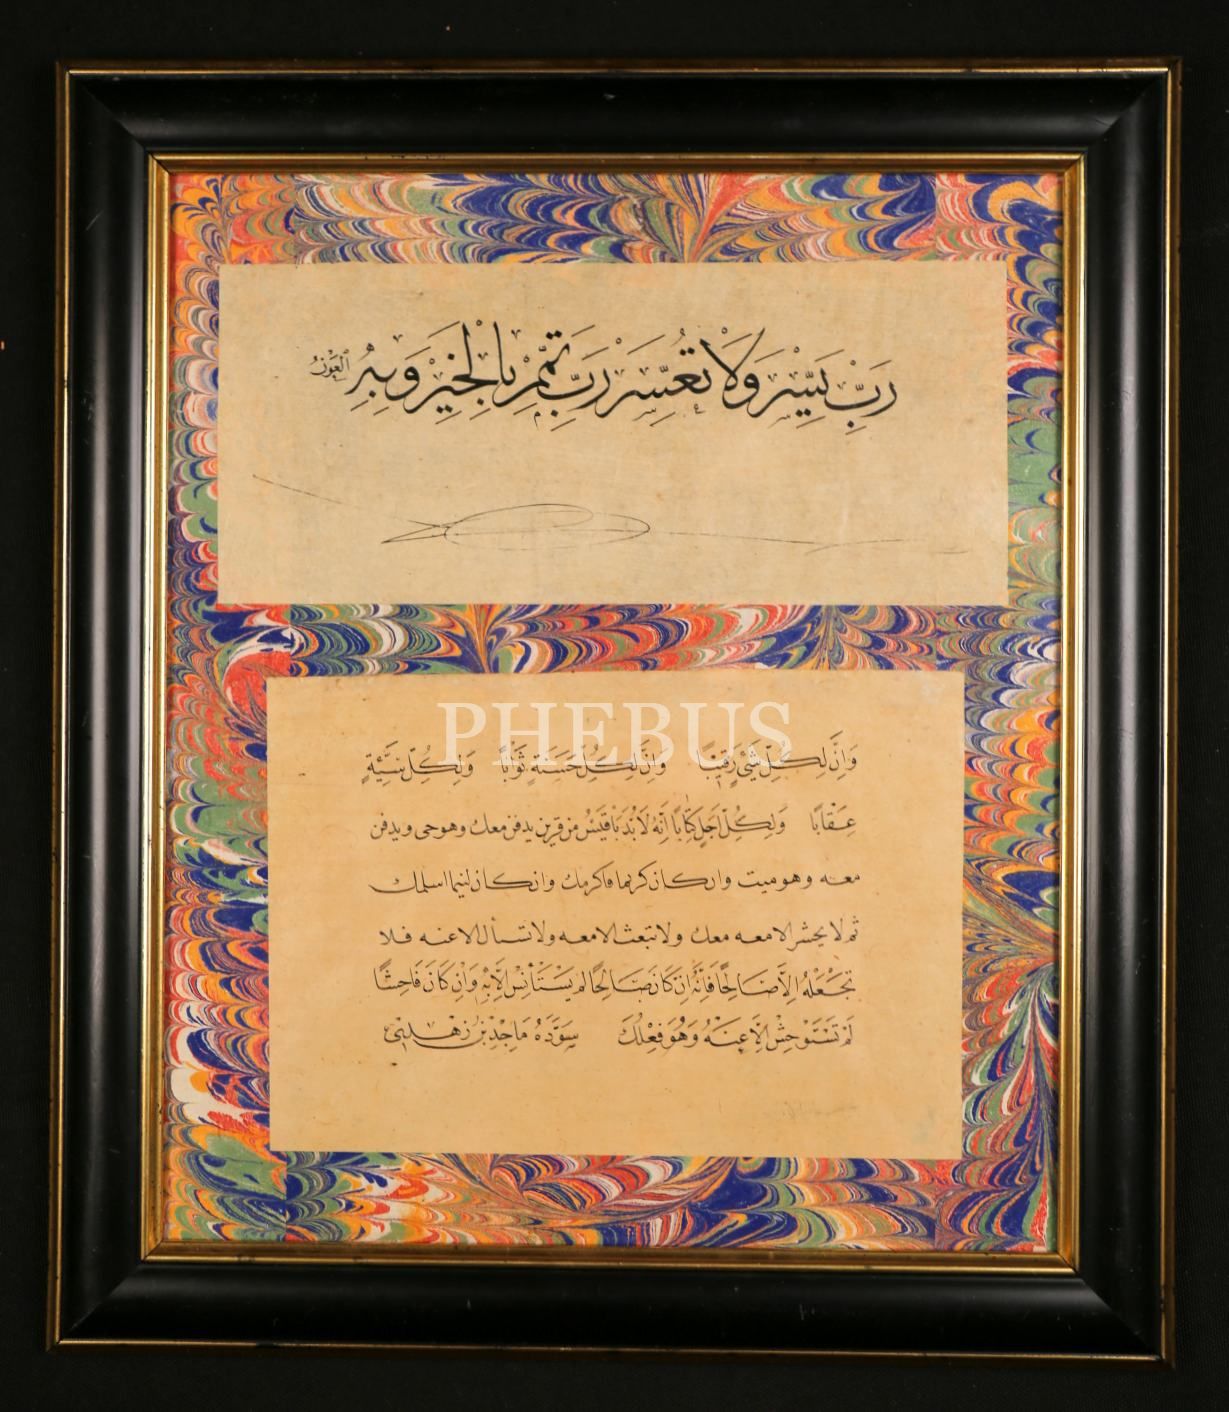 رَبِّ يَسِّرْ وَلَا تُعَسِّرْ رَبِّ تَمِّمْ بِالْخَيْرِ وَبِهِ الْعَوْنُ
PHEBUS
وَاِنَّ لِكُلِّ شَيْءٍ رَقِيبًا وَاِنَّ لِكُلِّ حَسَنَةٍ ثَوَابًا وَلِكُلِّ سَيِّئَةٍ
عِقَابًا وَلِكُلِّ اَجَلٍ كِتَابًا اِنَّهُ لَابُدَّ يَا قَيْسُ مِنْ قَرِينٍ يدفن معك وهو حى ويدفن
معه وهو ميت وان كان كريما فاكرمك وان كان لئيما اسلمك
ثم لا يحشر الا معه معك ولا تبعث الا معه ولا تسأل الا عنه فلا
تَجْعَلْهُ اِلَّا صَالِحًا فَاِنَّهُ اِنْ كَانَ صَالِحًا لَمْ يَسْتَأْنِسْ اِلَّا بِهِ وَاِنْ كَانَ فَاحِشًا
لَمْ تَسْتَوْحِشْ اِلَّا عِنَهُ وَهُوَ فِعْلُكَ سَوَّدَهُ مَاجِدْ بْنُ زُهْدِى